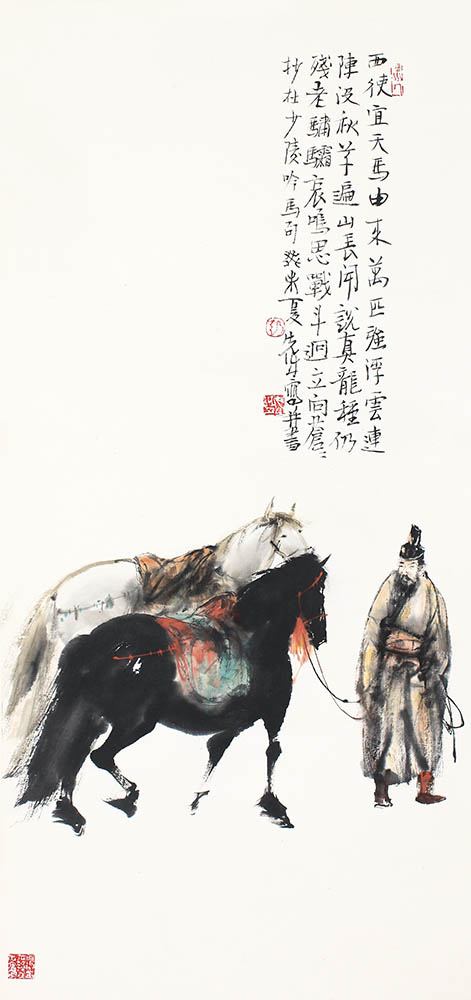 西使宜天馬由來萬匹強浮雲連
陳沒秋草遍山長聞說真龍種仍
殘老驌驦哀鳴思戰斗迥立向蒼〻
抄杜少陵吟馬句癸未夏寫并書